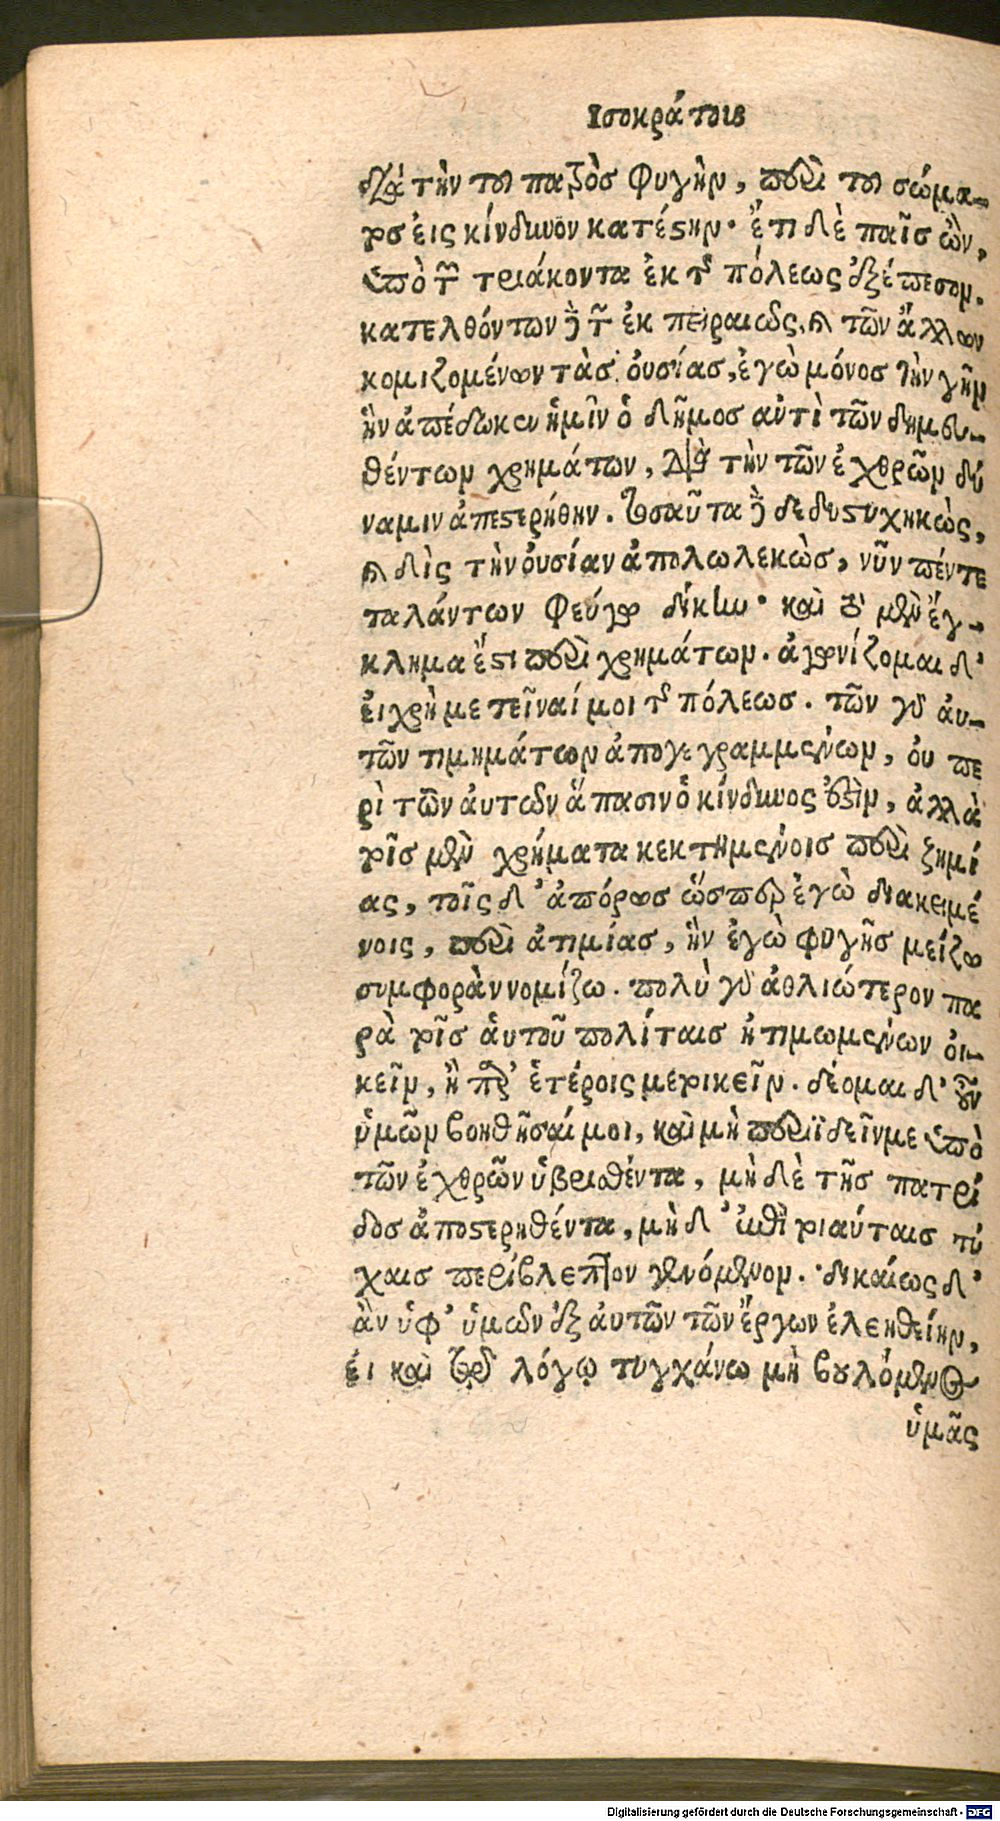 Ισοκράτους
διὰ τὴν τοῦ πατρὸς φυγὴν, περὶ τοῦ σώμα-
τος εἰς κίνδυνον κατέστην. ἔτι δὲ παῖς ὢν,
ὑπὸ τῶν τριάκοντα ἐκ τῆς πόλεως ἐξέπεσον.
κατελθόντων δὲ τῶν ἐκ πειραιῶς, καὶ τῶν ἄλλων
κομιζομένων τὰς οὐσίας, ἐγὼ μόνος τὴν γῆν
ἣν ἀπέδωκεν ἡμῖν ὁ δῆμος αὐτὶ τῶν δημευ-
θέντων χρημάτων, διὰ τὴν τῶν ἐχθρῶν δύ
ναμιν ἀπεστερήθην. τοσαῦτα δὲ δεδυστυχηκὼς,
καὶ δὶς τὴν οὐσίαν ἀπολωλεκὼς, νῦν πέντε
ταλάντων φεύγω δίκην. καὶ τὸ μὲν ἔγ-
κλημα ἔστι περὶ χρημάτων. ἀγωνίζομαι δ'
εἰ χρὴ μετεῖναί μοι τῆς πόλεως. τῶν γὰρ ἀυ-
τῶν τιμημάτων ἀπογεγραμμένων, οὐ πε
ρὶ τῶν ἀυτῶν ἅπασιν ὁ κίνδυνος ἐστὶν, ἀλλὰ
τοῖς μὲν χρήματα κεκτημένοις περὶ ζημί
ας, τοῖς δ' ἀπόρως ὥσπερ ἐγὼ διακειμέ
νοις, περὶ ἀτιμίας, ἣν ἐγὼ φυγῆς μείζω
συμφορὰν νομίζω. πολὺ γὰρ ἀθλιώτερον πα
ρὰ τοῖς ἁυτοῦ πολίταις ἠτιμωμένων οἰ-
κεῖν, ἢ παρ' ἑτέροις μετοικεῖν. δέομαι δ' οὖν
ὑμῶν βοηθῆσαί μοι, καὶ μὴ περιϊδεῖν με ὑπὸ
τῶν ἐχθρῶν ὑβρισθέντα, μὴ δὲ τῆς πατρί
δος ἀποστερηθέντα, μὴ δ' ἐπὶ τοιαύταις τύ
χαις περίβλεπτον γενόμενον. δικαίως δ'
ἂν ὑφ' ὑμῶν ἐξ ἀυτῶν τῶν ἔργων ἐλεηθείην,
εἰ καὶ τῷ λόγῳ τυγχάνω μὴ βουλόμενος
ὑμᾶς
Digitalisierung gefördert durch die Deutsche Forschungsgemeinschaft - DFG